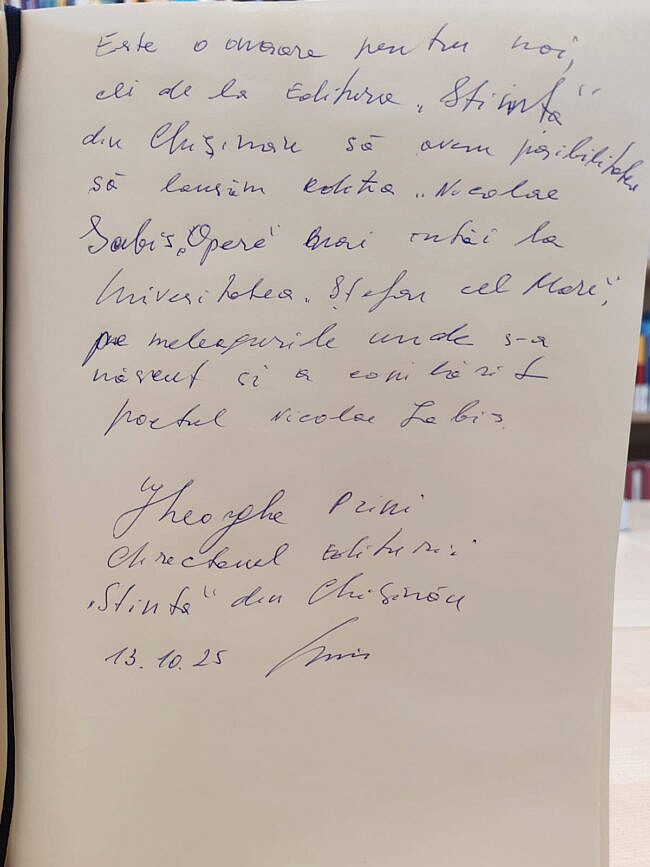 Este o onoare pentru noi,
cei de la Editura „Stiința“
din Chișinău să avem posibilitatea
să lansăm ediția „Nicolae
Labiș „Opere“ mai întâi la
Universitatea „Ștefan cel Mare“,
pe meleagurile unde s-a
născut și a copilărit
poetul Nicolae Labiș.
Gheorghe Prini
Directorul Editurii
„Stiința“ din Chișinău
13.10.25